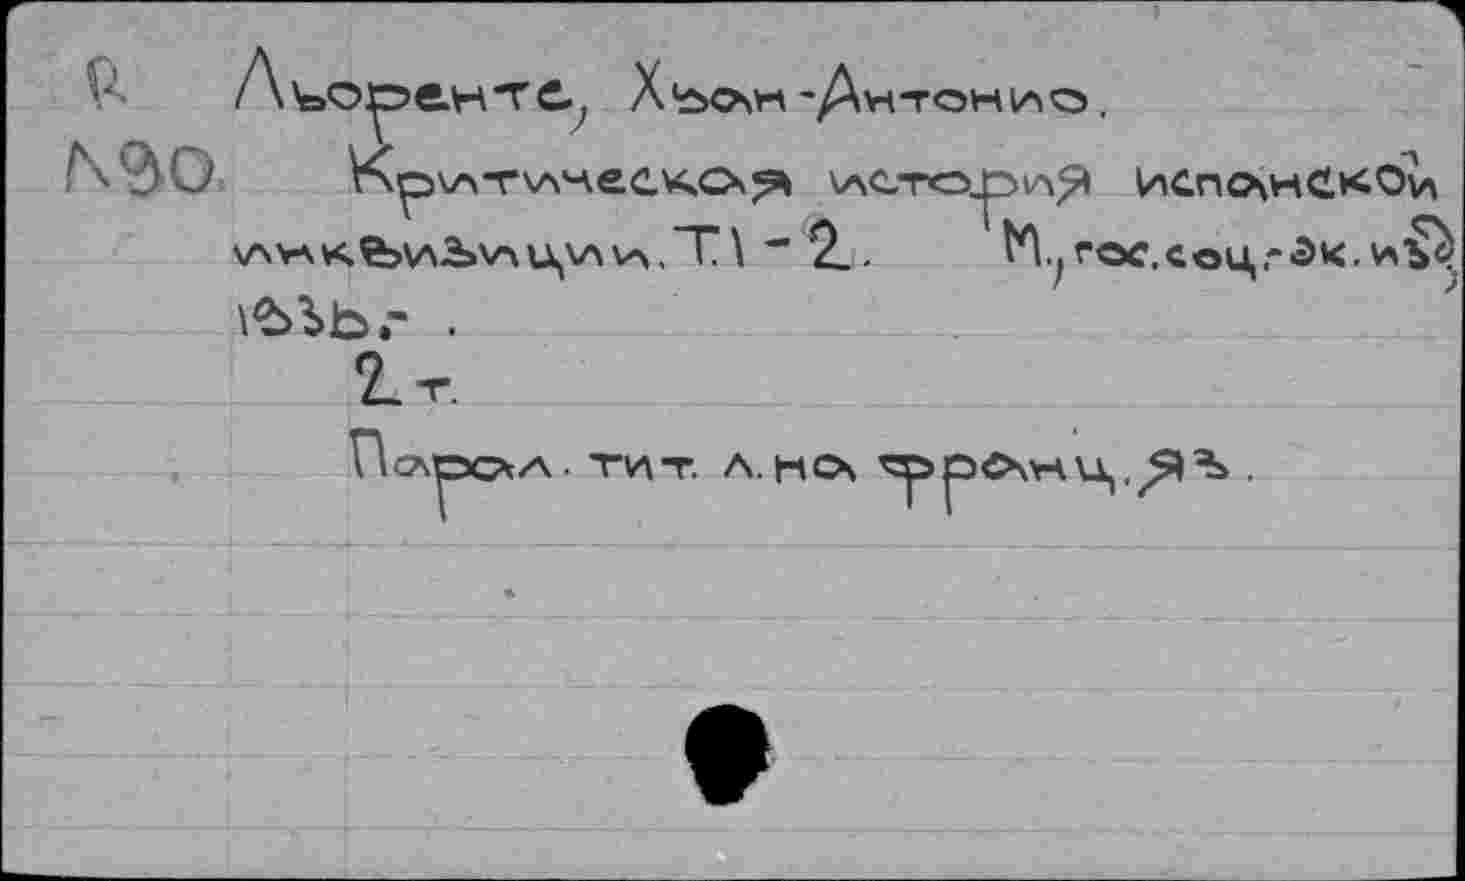 R Льоренте, Хьоан-Антонио.
Л90 Критическая история испанской
инквизиции. Т.1 - 2. М., гос. соц.-эк. изд.,
1936г.
2 т.
Парал. тит. л. на франц. яз.